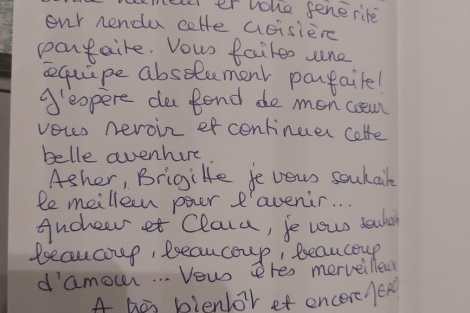 bonne humeur et votre générosité
ont rendu cette croisière
parfaite. Vous faites une
équipe absolument parfaite!
J'espère du fond de mon cœur
vous revoir et continuer cette
belle aventure.
Asher, Brigitte je vous souhaite
le meilleur pour l'avenir...
et Clara, je vous souhaite
beaucoup, beaucoup, beaucoup
d'amour... Vous êtes merveilleux
A très bientôt et encore MERCI